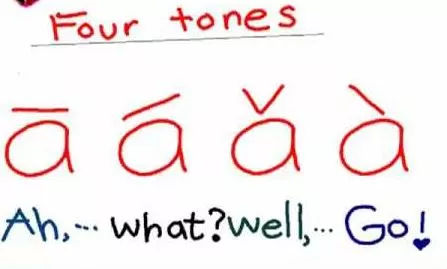 Four tones
ā á ǎ à
Ah,… what? well,… Go!